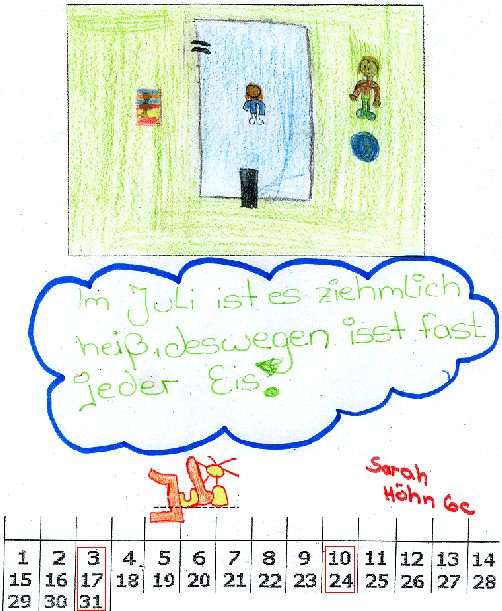 Im Juli ist es ziehmlich
heiß, deswegen isst fast
jeder Eis!
Juli
Sarah
Höhn 6c
1 2 3 4 5 6 7 8 9 10 11 12 13 14
15 16 17 18 19 20 21 22 23 24 25 26 27 28
29 30 31